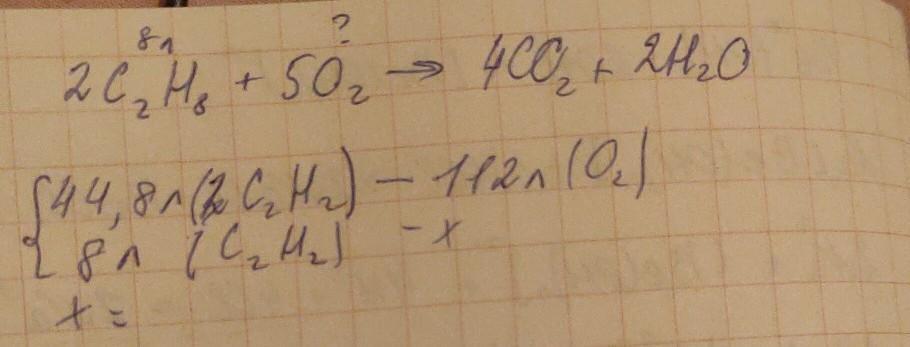 8л ?
2C₂H₈ + 5O₂ → 4CO₂ + 2H₂O
{44,8л(2C₂H₂) – 112л(O₂)
8л (C₂H₂) – x
x =